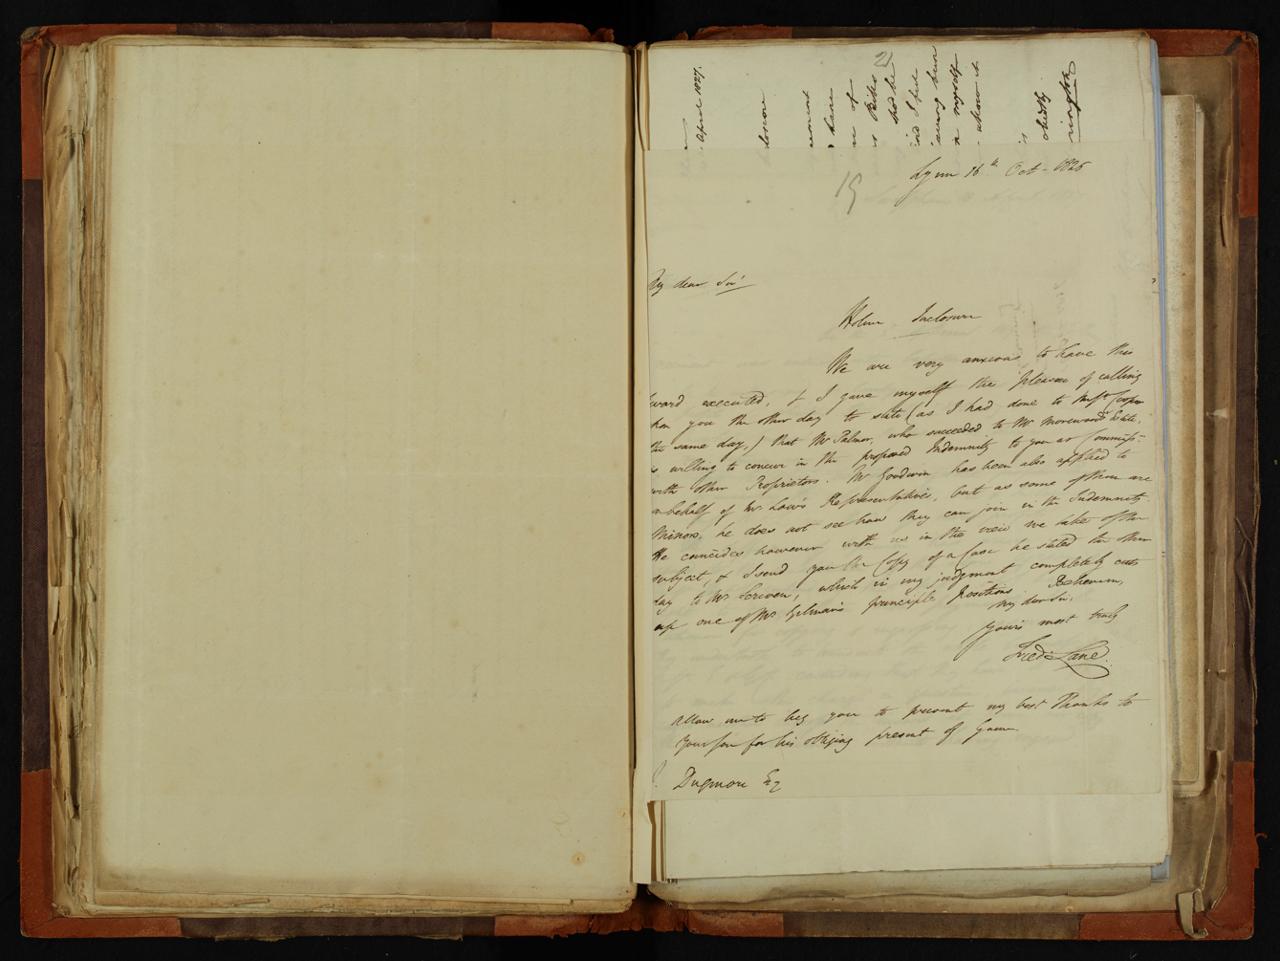 April 1827.
21
Lynn 16th Oct - 1826
19
My dear Sir
Holme Inclosure
We are very anxious to have this
Award executed, & I gave myself the pleasure of calling
upon you the other day to state (as I had done to
the same day,) that Mr Palmer, who succeeded to Mr Moreword's Estate,
is willing to concur in the proposed Indemnity to you as Commissr
with other Proprietors. Mr Goodwin has been also applied to
on behalf of Mr Law's Representatives, but as some of them are
Minors, he does not see how they can join in the Indemnity.
He coincides however with us in the view we take of the
subject, & I send you the Copy of a Case he stated the other
day to Mr Scriven, which in my judgment completely cuts
up one of Mr Gilman's principle positions.
My dear Sir,
Yours most truly
Fredk Lane
Allow me to beg you to present my best Thanks to
your son for his obliging present of Game
Dugmore Esq